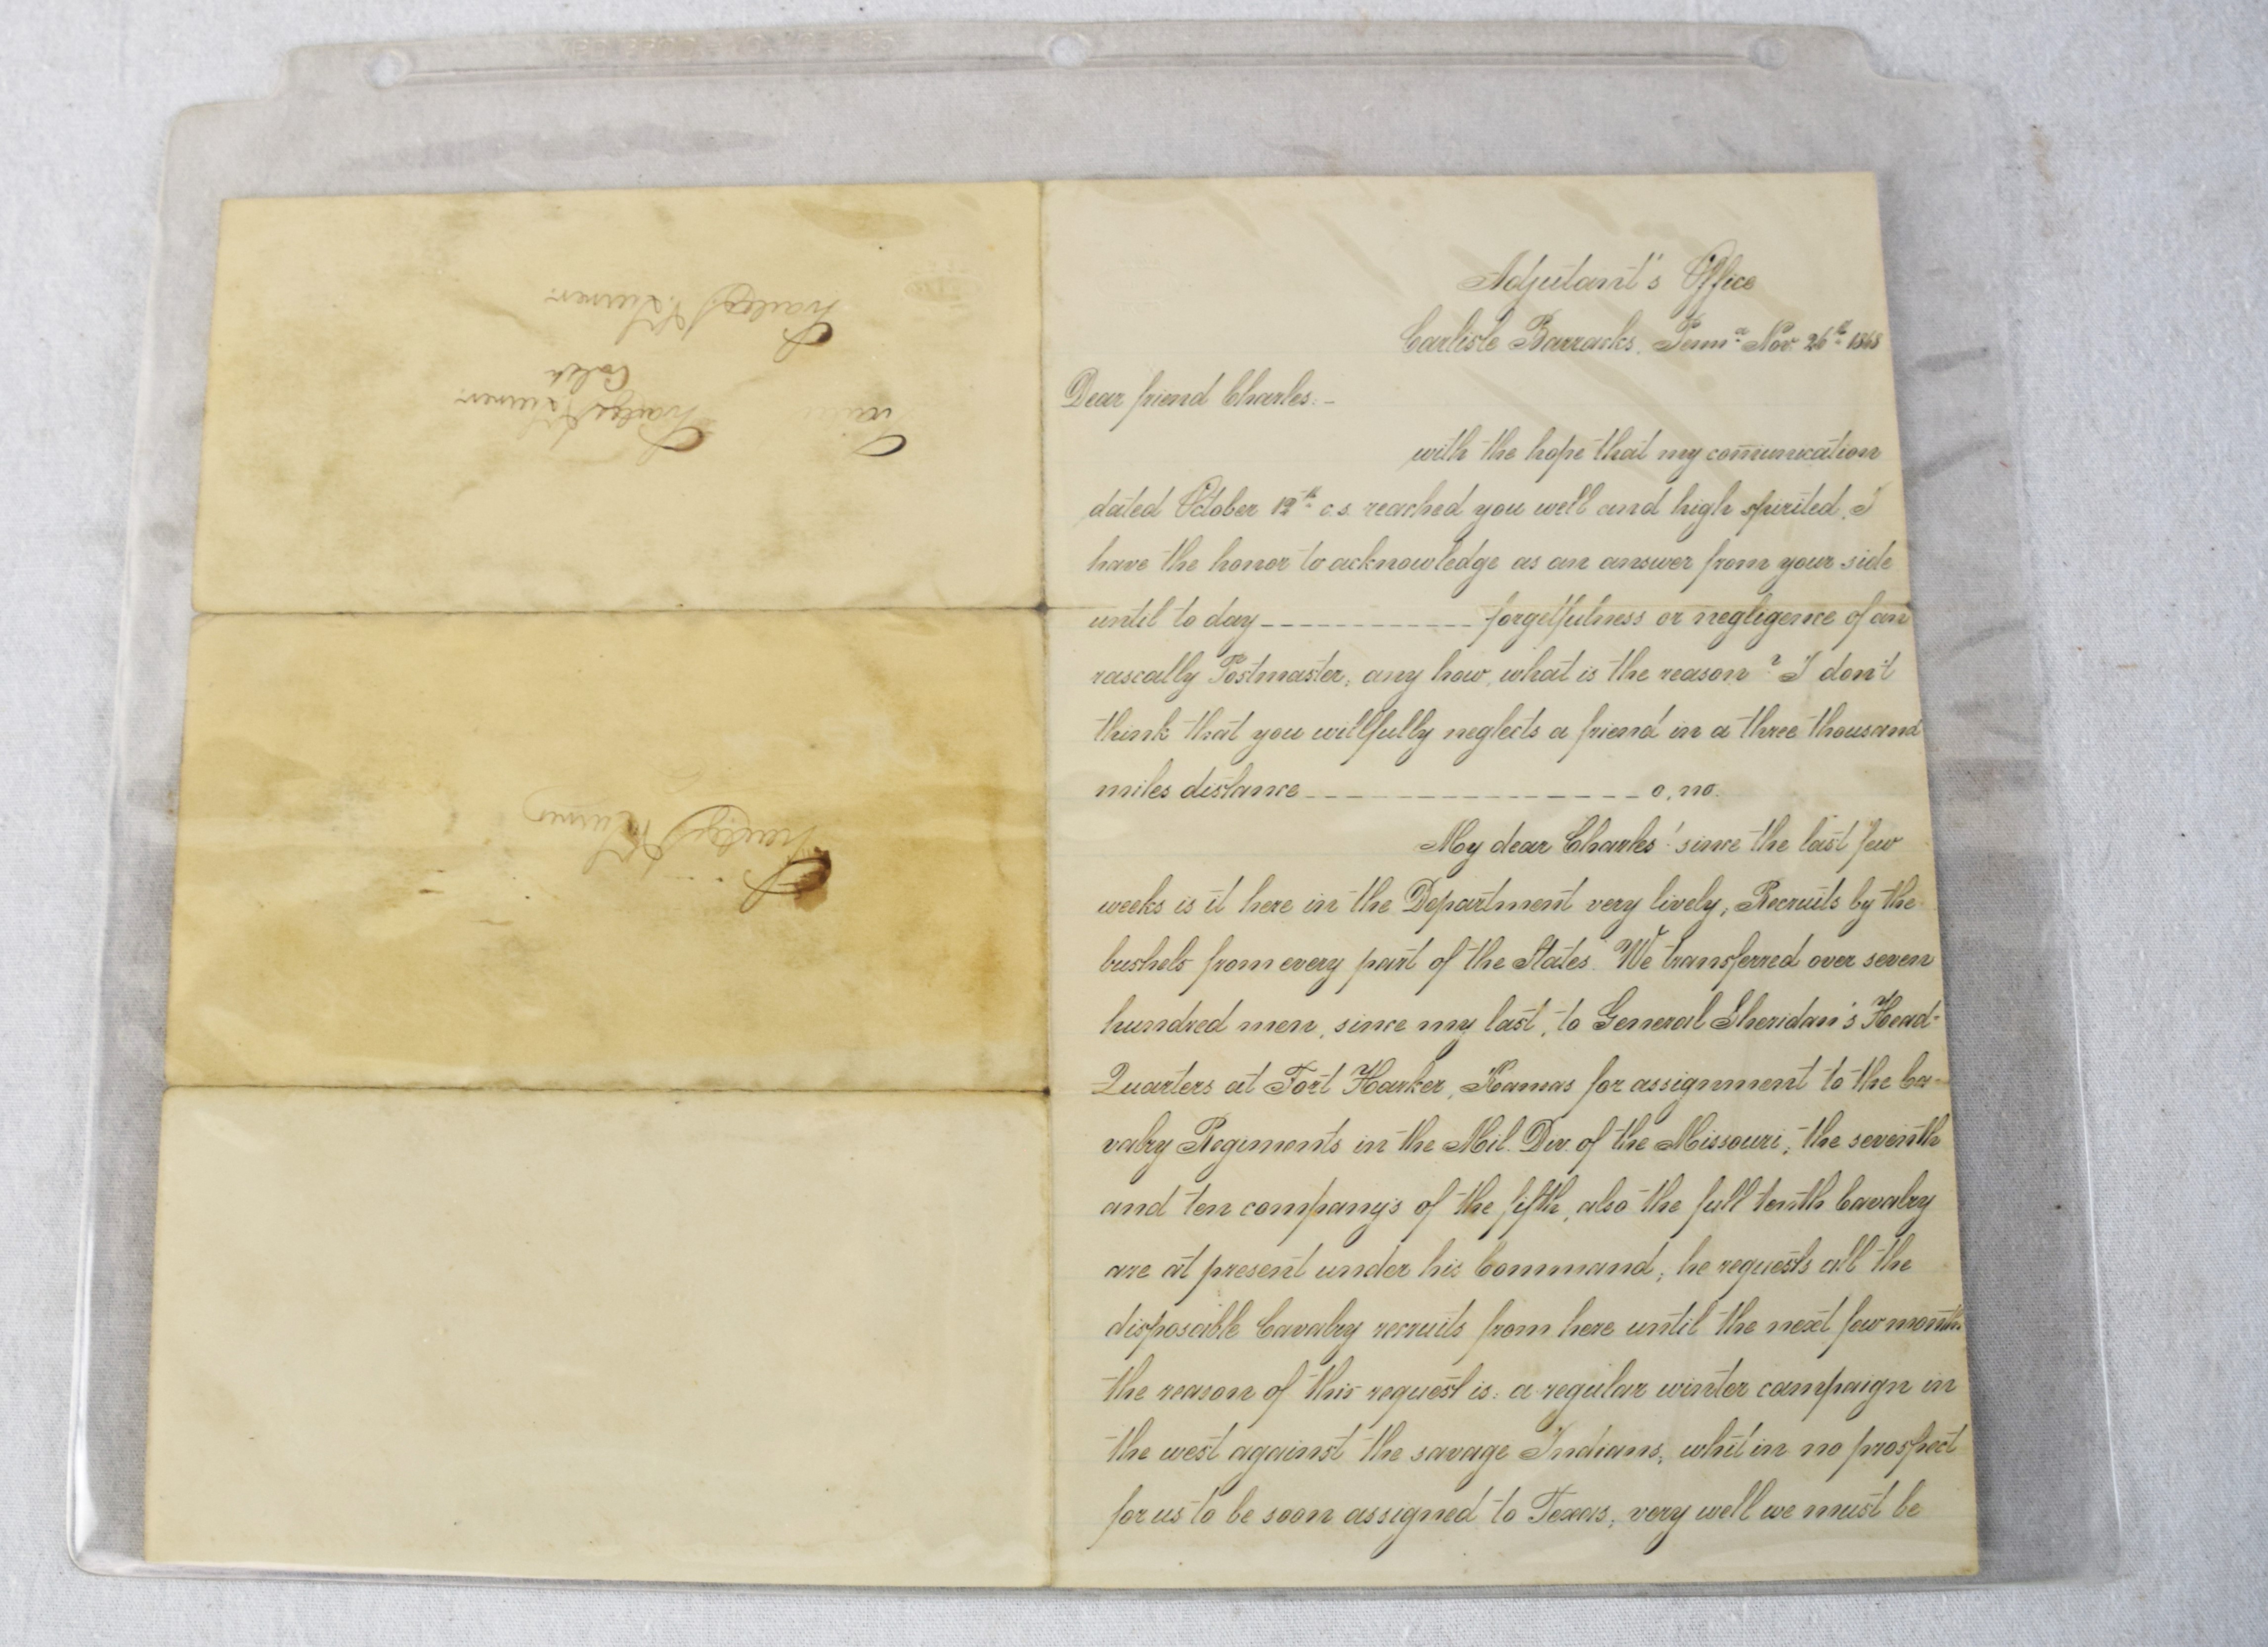 Adjutant's Office
Carlisle Barracks, Penn.a Nov. 26th 1868
Dear friend Charles:-
with the hope that my comunication
dated October 12th c.s. reached you well and high spirited, I
have the honor to acknowledge as an answer from your side
until to day ____________ forgetfulness or negligence of an
rascally Postmaster, any how, what is the reason? I don't
think that you willfully neglects a friend in a three thousand
miles distance ________________ o, no.
My dear Charles! since the last few
weeks is it here in the Department very lively, Recruits by the
bushels from every part of the States. We transferred over seven
hundred men, since my last, to General Sheridan's Head-
Quarters at Fort Harker, Kansas for assignment to the Ca-
valry Regiments in the Mil. Div. of the Missouri, the seventh
and ten company's of the fifth, also the full tenth Cavalry
are at present under his Command, he requests all the
disposable Cavalry recruits from here until the next few months
the reason of this request is: a regular winter campaign in
the west against the savage Indians, whit in no prospect
for us to be soon assigned to Texas, very well we must be
Charles
Charles